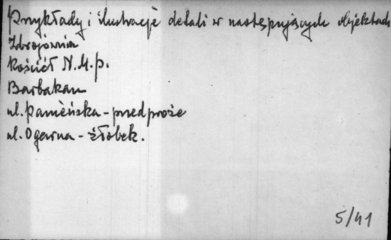 Przykłady i ilustracje detali w następujących objektach
Zdrojównia
Kościół N.M.P.
Barbakan
ul. Kamieńska - przedproże
ul. Ogarna - żłobek.
5/41